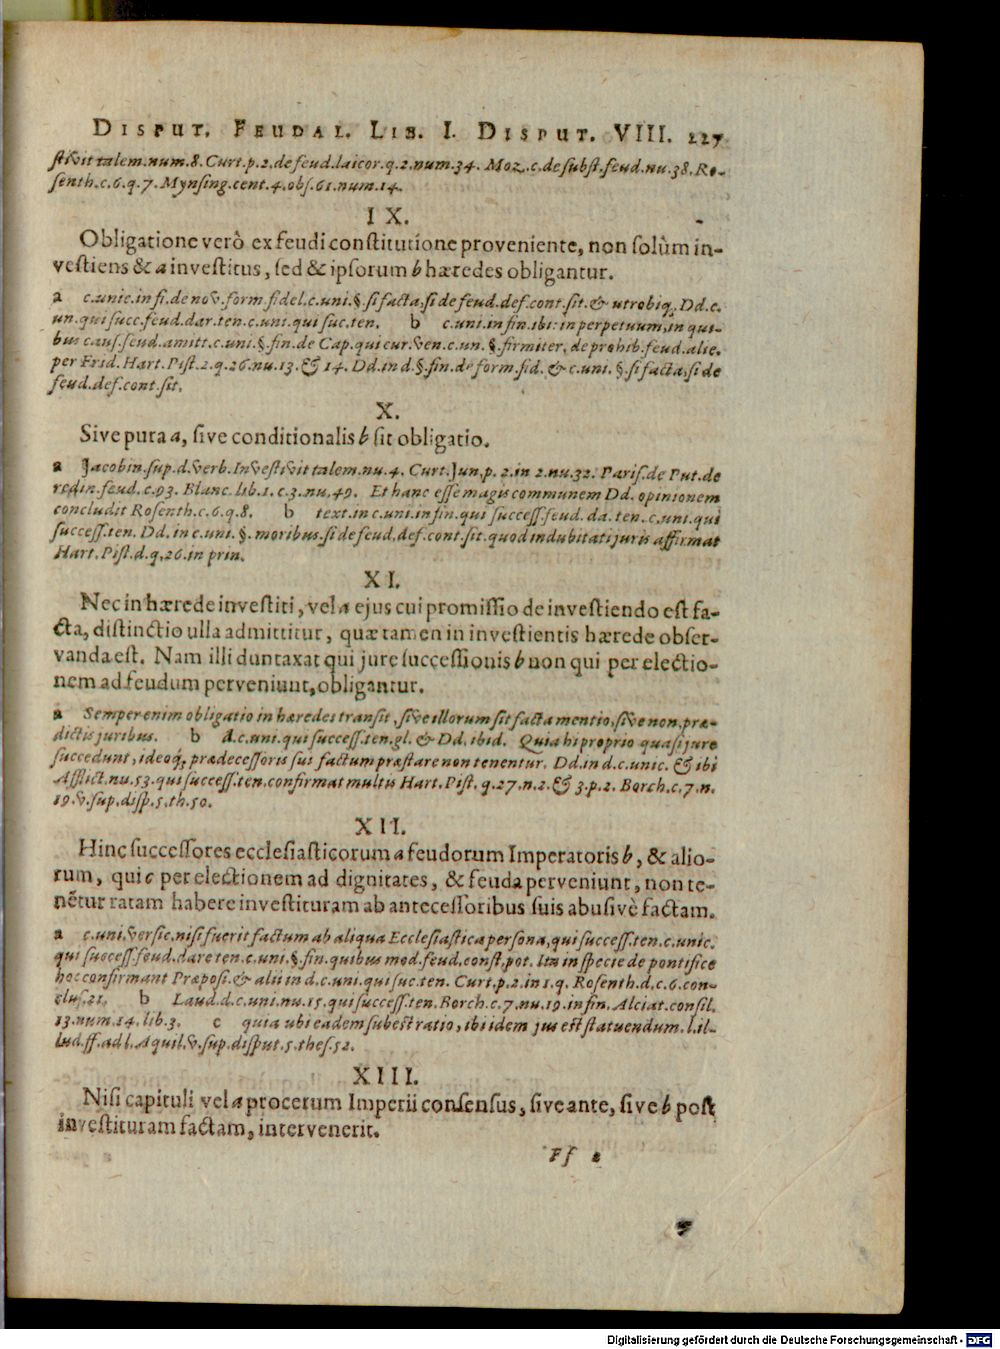 DISPUT. FEUDAL. LIB. I. DISPUT. VIII. 227
stivit talem.num.8. Curt.p.2.de feud.laicor.q.2.num.34. Moz.c.de subst.feud.nu.38. Ro-
senth.c.6.q.7. Mynsing.cent.4.obs.61.num.14.
IX.
Obligatione verò ex feudi constitutione proveniente, non solùm in-
vestiens & a investitus, sed & ipsorum b hæredes obligantur.
a c.unic.in fi.de nov.form.fidel.c.uni.§.si facta,si de feud.def.cont.sit.& utrobiq; Dd.c.
un.qui succ.feud.dar.ten.c.uni.qui suc.ten. b c.uni.in fin.ibi: in perpetuum,in qui-
bus caus.feud.amitt.c.uni.§.fin.de Cap.qui cur.ven.c.un.§.firmiter, de prohib.feud.alie.
per Frid.Hart.Pist.2.q.26.nu.13.& 14. Dd.in d.§.fin.de form.fid. & c.uni.§.si facta,si de
feud.def.cont.sit.
X.
Sive pura a, sive conditionalis b sit obligatio.
a Jacobin.sup.d.verb.Investivit talem.nu.4. Curt.Jun.p.2.in 2.nu.32. Paris.de Put.de
redin.feud.c.93. Blanc.lib.1.c.3.nu.49. Et hanc esse magis communem Dd. opinionem
concludit Rosenth.c.6.q.8. b text.in c.uni.in fin.qui success.feud.da.ten.c.uni.qui
success.ten. Dd.in c.uni.§.moribus.si de feud.def.cont.sit.quod indubitati juris affirmat
Hart.Pist.d.q.26.in prin.
XI.
Nec in hærede investiti, vel a ejus cui promissio de investiendo est fa-
cta, distinctio ulla admittitur, quæ tamen in investientis hærede obser-
vanda est. Nam illi duntaxat qui jure successionis b non qui per electio-
nem ad feudum perveniunt, obligantur.
a Semper enim obligatio in hæredes transit, sive illorum sit facta mentio, sive non.præ-
dictis juribus. b d.c.uni.qui success.ten.gl. & Dd.ibid. Quia hi proprio quasi jure
succedunt, ideoq; prædecessoris sui factum præstare non tenentur. Dd.in d.c.unic. & ibi
Afflict.nu.53.qui success.ten.confirmat multis Hart.Pist.q.27.n.2.& 3.p.2. Borch.c.7.n.
19.v.sup.disp.5.th.50.
XII.
Hinc successores ecclesiasticorum a feudorum Imperatoris b, & alio-
rum, qui c per electionem ad dignitates, & feuda perveniunt, non te-
nẽtur ratam habere investituram ab antecessoribus suis abusivè factam.
a c.uni.versic.nisi fuerit factum ab aliqua Ecclesiastica persona,qui success.ten.c.unic.
qui success.feud.dare ten.c.uni.§.fin.quibus mod.feud.const.pot. Ita in specie de pontifice
hoc confirmant Præposi.& alii in d.c.uni.qui suc.ten. Curt.p.2.in 1.q. Rosenth.d.c.6.con-
clus.21. b Laud.d.c.uni.nu.15.qui success.ten. Borch.c.7.nu.19.in fin. Alciat.consil.
13.num.14.lib.3. c quia ubi eadem subest ratio, ibi idem jus est statuendum.l.il-
lud.ff.ad l.Aquil.v.sup.disput.5.thes.52.
XIII.
Nisi capituli vel a procerum Imperii consensus, sive ante, sive b post
investituram factam, intervenerit.
Ff 2
Digitalisierung gefördert durch die Deutsche Forschungsgemeinschaft - DFG